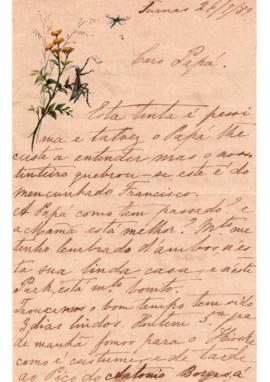 Furnas 26/7/89
Caro Papá.
Esta tinta é pessi
ma e talvez o Papá lhe
custe a entender mas o nosso
tinteiro quebrou-se este é do
meu cunhado Francisco.
A Papá como tem passado? e
a Mamã está melhor? Mto me
tenho lembrado d'ambos n'es
ta sua linda casa e n'este
Park está mto bonito.
Trouxemos o bom tempo tem sido
3 dias lindos. Hontem 5ra fra
de manhã fomos para o
como é costume e de tarde
ao Pico do Antonio Borges, á